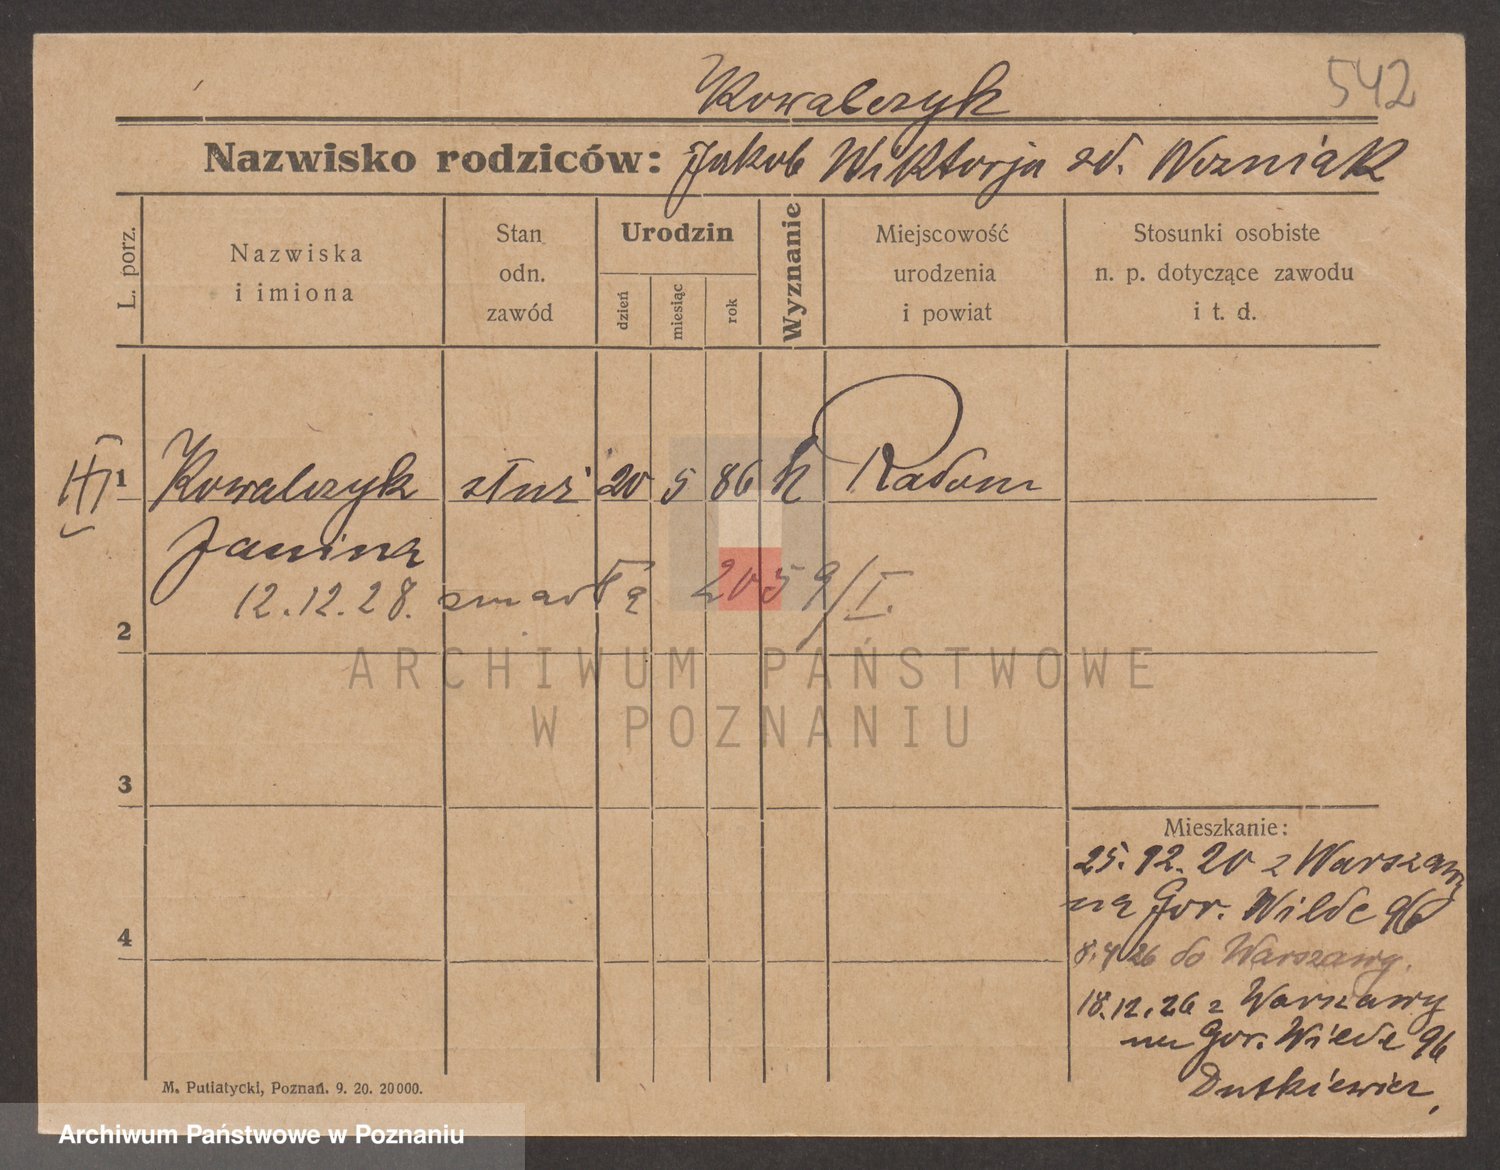 542
Kowalczyk
Nazwisko rodziców: Jakob Wiktorja zd. Wozniak
L. porz.
Nazwiska
i imiona
Stan
odn.
zawód
Urodzin
dzień
miesiąc
rok
Wyznanie
Miejscowość
urodzenia
i powiat
Stosunki osobiste
n. p. dotyczące zawodu
i t. d.
1 Kowalczyk służ 20 5 86 k Radom
Janina
12.12.28. zmarła 2059/I.
2
ARCHIWUM PAŃSTWOWE
W POZNANIU
3
4
Mieszkanie:
25.12.20 z Warszawy
na Gor. Wilde 96
8.4.26 do Warszawy.
18.12.26 z Warszawy
na Gor. Wilde 96
Dutkiewicz,
M. Putiatycki, Poznań. 9. 20. 20000.
Archiwum Państwowe w Poznaniu